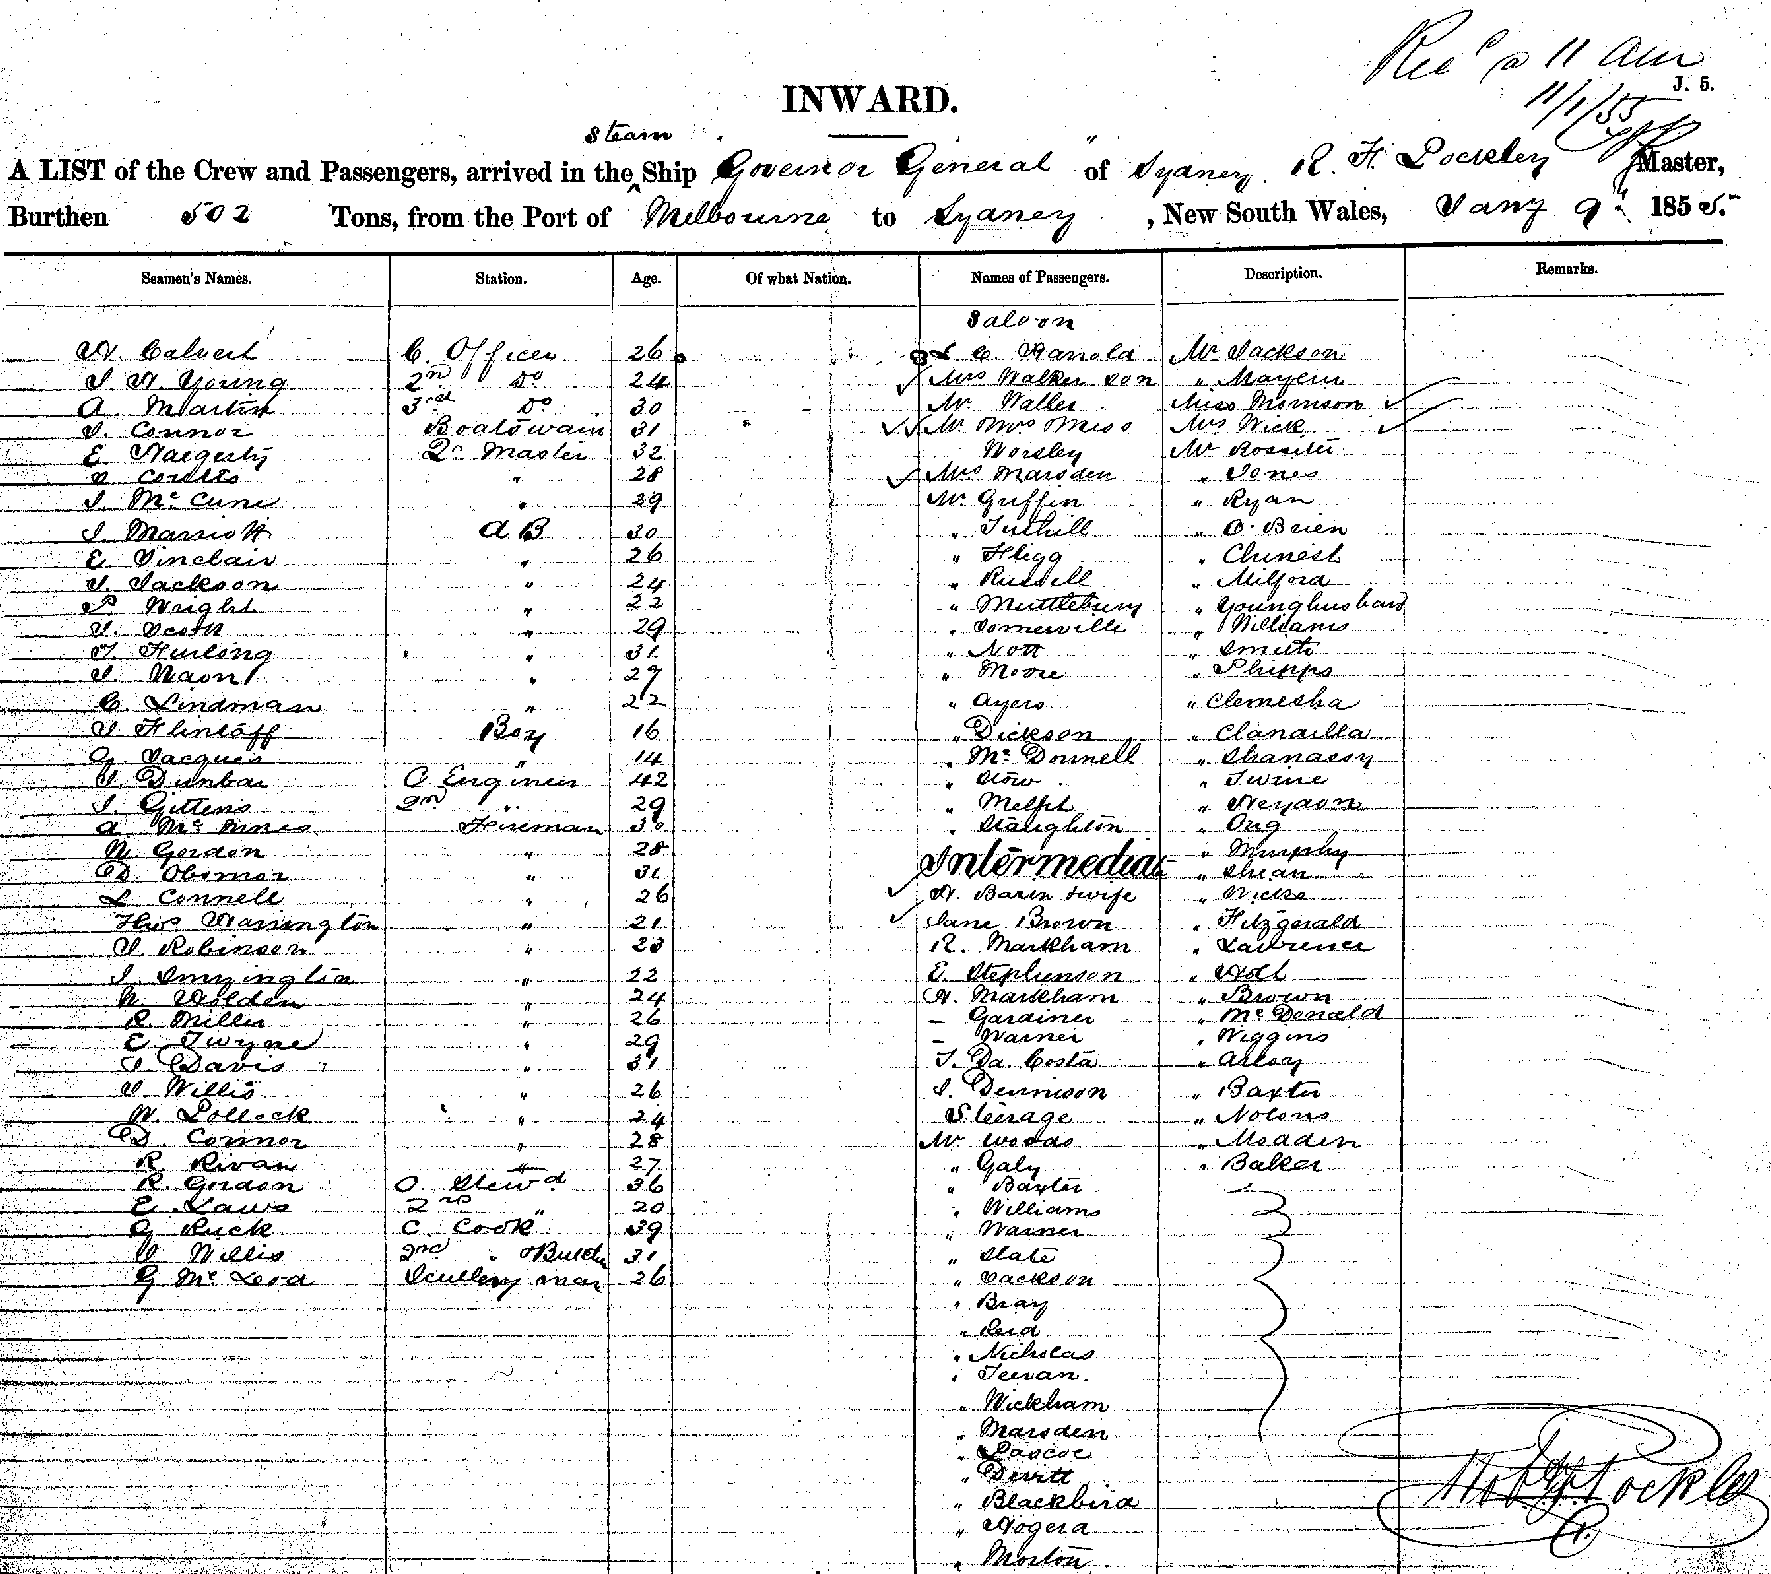 Recd @ 11 am
J. 5.
11/1/55
INWARD.
Steam
A LIST of the Crew and Passengers, arrived in the ^ Ship Governor General " of Sydney. R. H. Pockley Master,
Burthen 502 Tons, from the Port of Melbourne to Sydney , New South Wales, Jany 9th 1855.
Seamen's Names. Station. Age. Of what Nation. Names of Passengers. Description. Remarks.
Saloon
Calvert C. Officer 26 Mr Jackson
Young 2nd Do 24 Mrs Walker son "
A. Martin 3rd Do 30 Mr Waller Miss Morrison
Connor Boatswain 31 Mr Mrs Miss Mrs Wick
E. Hagerty Qr Master 32 Worsley Mr Rossiter
" 28 Mrs Marsden " Jones
McCune " 29 Mr Griffin " Ryan
J. Marriott A B 30 " Tuthill " O'Brien
E. Sinclair " 26 " Fligg "
Jackson " 24 " Russell " Milford
Wright " 22 " Muttlebury " Younghusband
Scott " 29 " Somerville " Williams
Furlong " 31 " Nott " Smith
" 27 " Moore " Phipps
C. Lindman " 22 " Ayers " Clemesha
Flintoff Boy 16 " Dickson "
G. Jacques " 14 " McDonnell " Shanassy
Dunbar C Engineer 42 " Stow "
Gittens 2nd " 29 " "
A. McInnes Fireman 30 " Staughton "
Gordon " 28 Intermediate " Murphy
D. " 31 "
Connell " 26 H. wife " Hicks
Thos Warrington " 21 Jane Brown " Fitzgerald
Robinson " 23 R. Markham " Lawrence
" 22 E. Stephenson "
Holden " 24 H. Markham " Brown
R. Miller " 26 – Gardiner " McDonald
E. Twyne " 29 – Warner " Wiggins
Davis " 31 Da Costa "
Willis " 26 Dennison " Baxter
W. Pollock " 24 Steerage "
D. Connor " 28 Mr Woods " Madden
R. " 27 " Galy " Baker
R. Gordon C. Stewd 36 " Baxter
E. Laws 2nd " 20 " Williams
G Ruck C. Cook 39 " Warner
Willis 2nd " Butcher 31 " Slate
G McLeod Scullery man 26 " Jackson
" Bray
" Reid
" Nicholas
" Teevan
" Wickham
" Marsden
" Pascoe
" Devitt
" Blackbird
"
" Morton